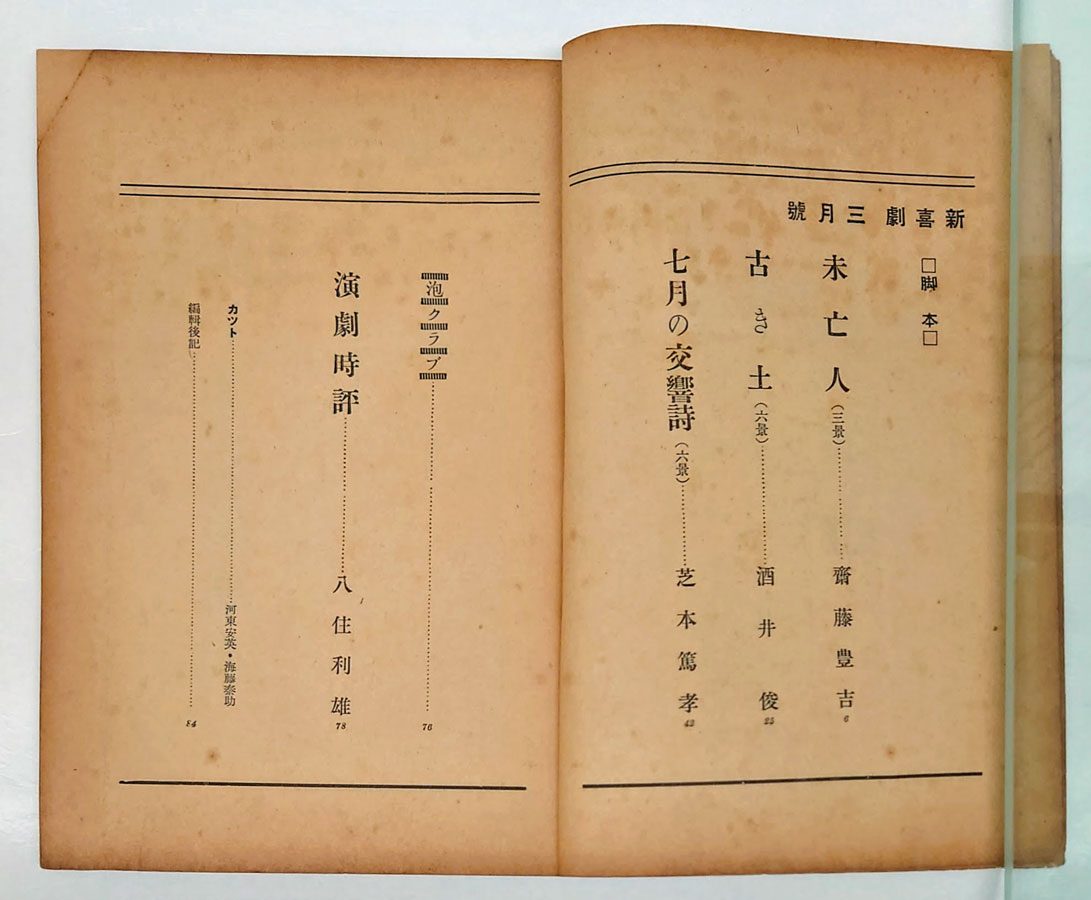 新喜劇 三月號
□脚本□
未亡人(三景)……齋藤豊吉 6
古き土(六景)……酒井俊 25
七月の交響詩(六景)……芝本篤孝 42
泡クラブ……76
演劇時評……八住利雄 78
カツト……河東安英・海藤泰助
編輯後記……84